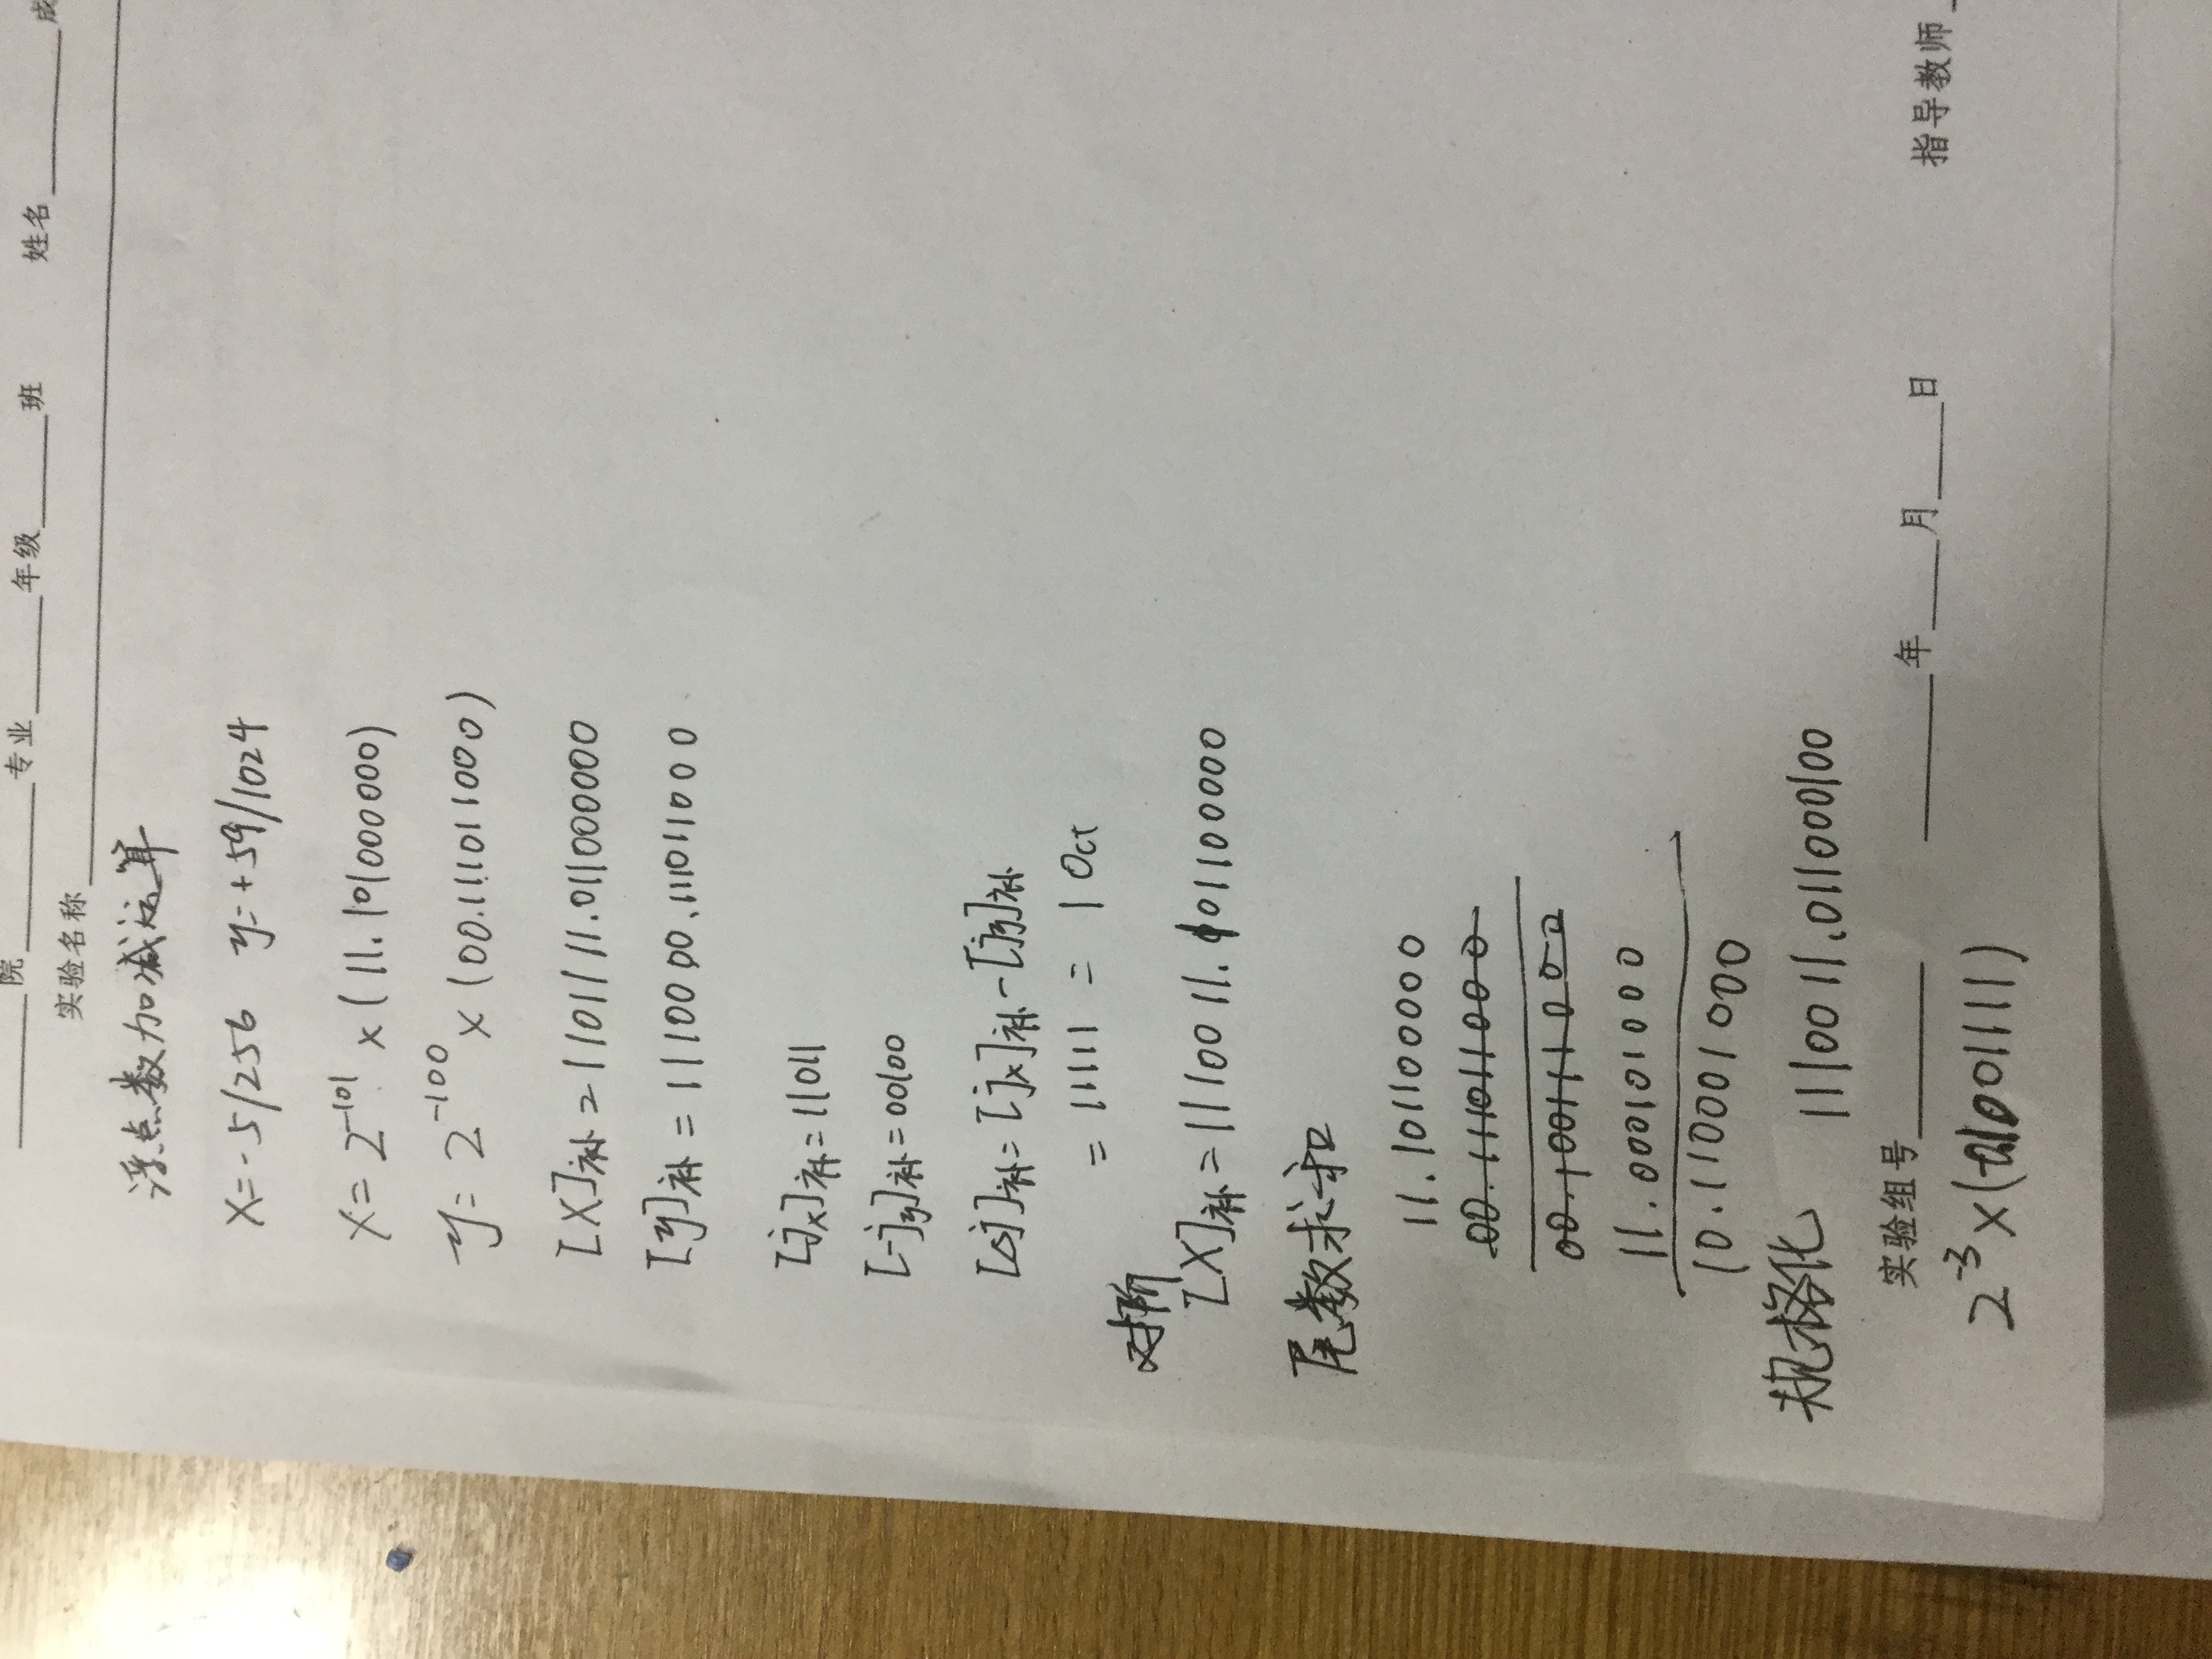 院 专业 年级 班 姓名 成
实验名称
浮点数加减运算
X=-5/256 y=+59/1024
X=2^-101 x(11.10100000)
y=2^-100 x(00.111011000)
[X]补=11011 11.01100000
[y]补=11100 00.111011000
[jx]补=11011
[-jy]补=00100
[△j]补=[jx]补-[jy]补
=11111=1 Oct
对阶
[X]补=11100 11.101100000
尾数求和
11.10110000
00.111011000
00.100111000
11.000101000
10.110001000
规格化 11100 11.011000100
实验组号 年 月 日 指导教师
2^-3 x(1001111)